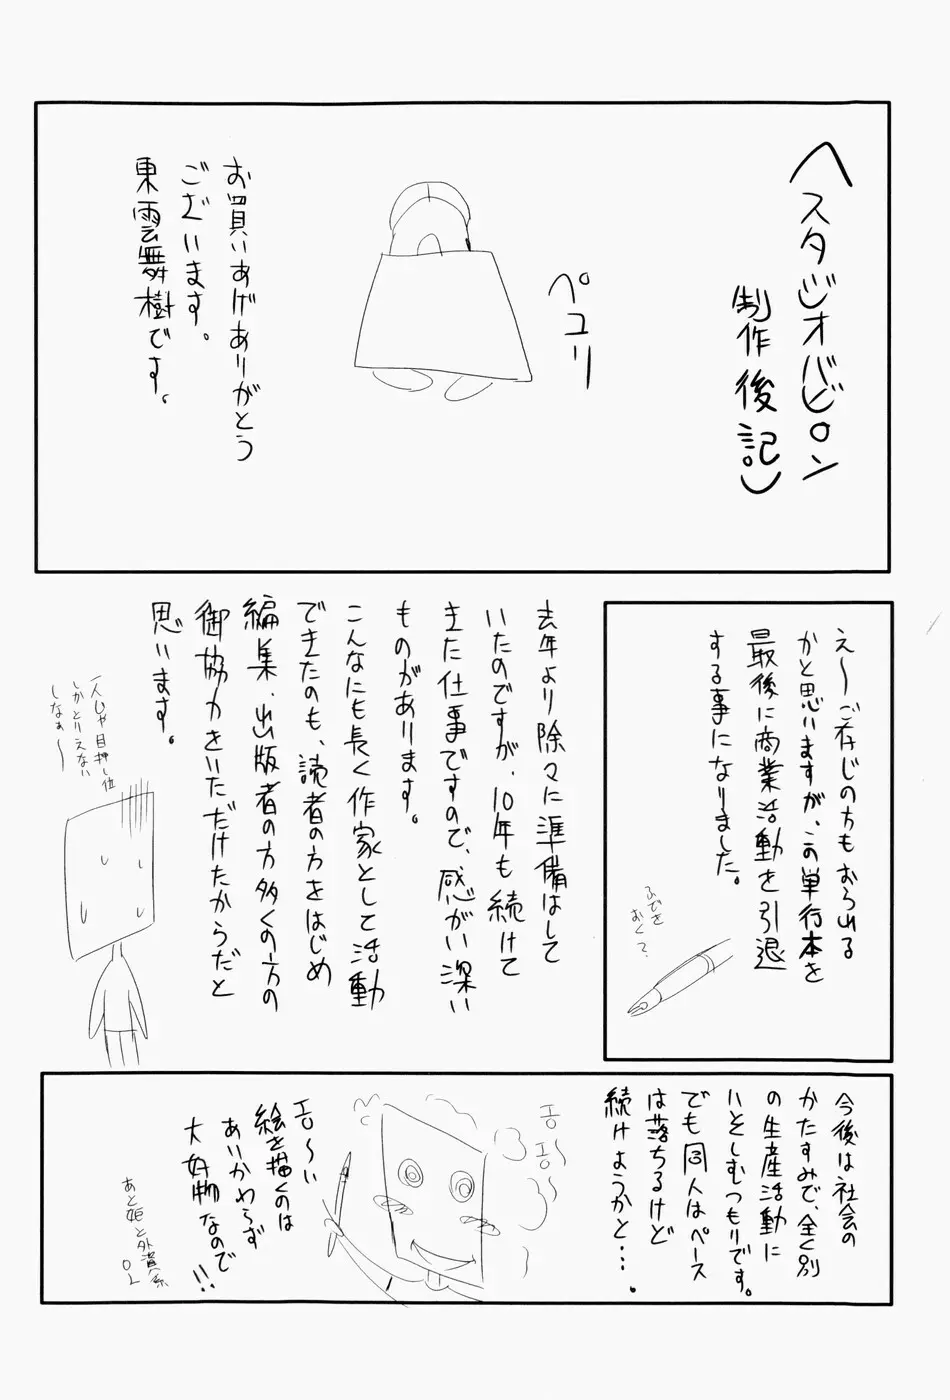 へスタジオバビロン
制作後記
ペユリ
お買いあげありがとう
ございます。
東雲舞樹です。
え〜ご存じの方もおられる
かと思いますが、この単行本を
最後に商業活動を引退
する事になりました。
ふでを
おく?
去年より除々に準備はして
いたのですが、10年も続けて
きた仕事ですので、感がい深い
ものがあります。
こんなにも長く作家として活動
できたのも、読者の方をはじめ
編集、出版者の方多くの方の
御協力をいただけたからだと
思います。
一人じゃ目押し位
しかとりえない
しなぁ〜
今後は社会の
かたすみで、全く別
の生産活動に
いそしむつもりです。
でも同人はペース
は落ちるけど
続けようかと…。
エ
エ〜
エ〜い
絵を描くのは
あいかわらず
大好物なので
!!
あと姫と外資系
OL